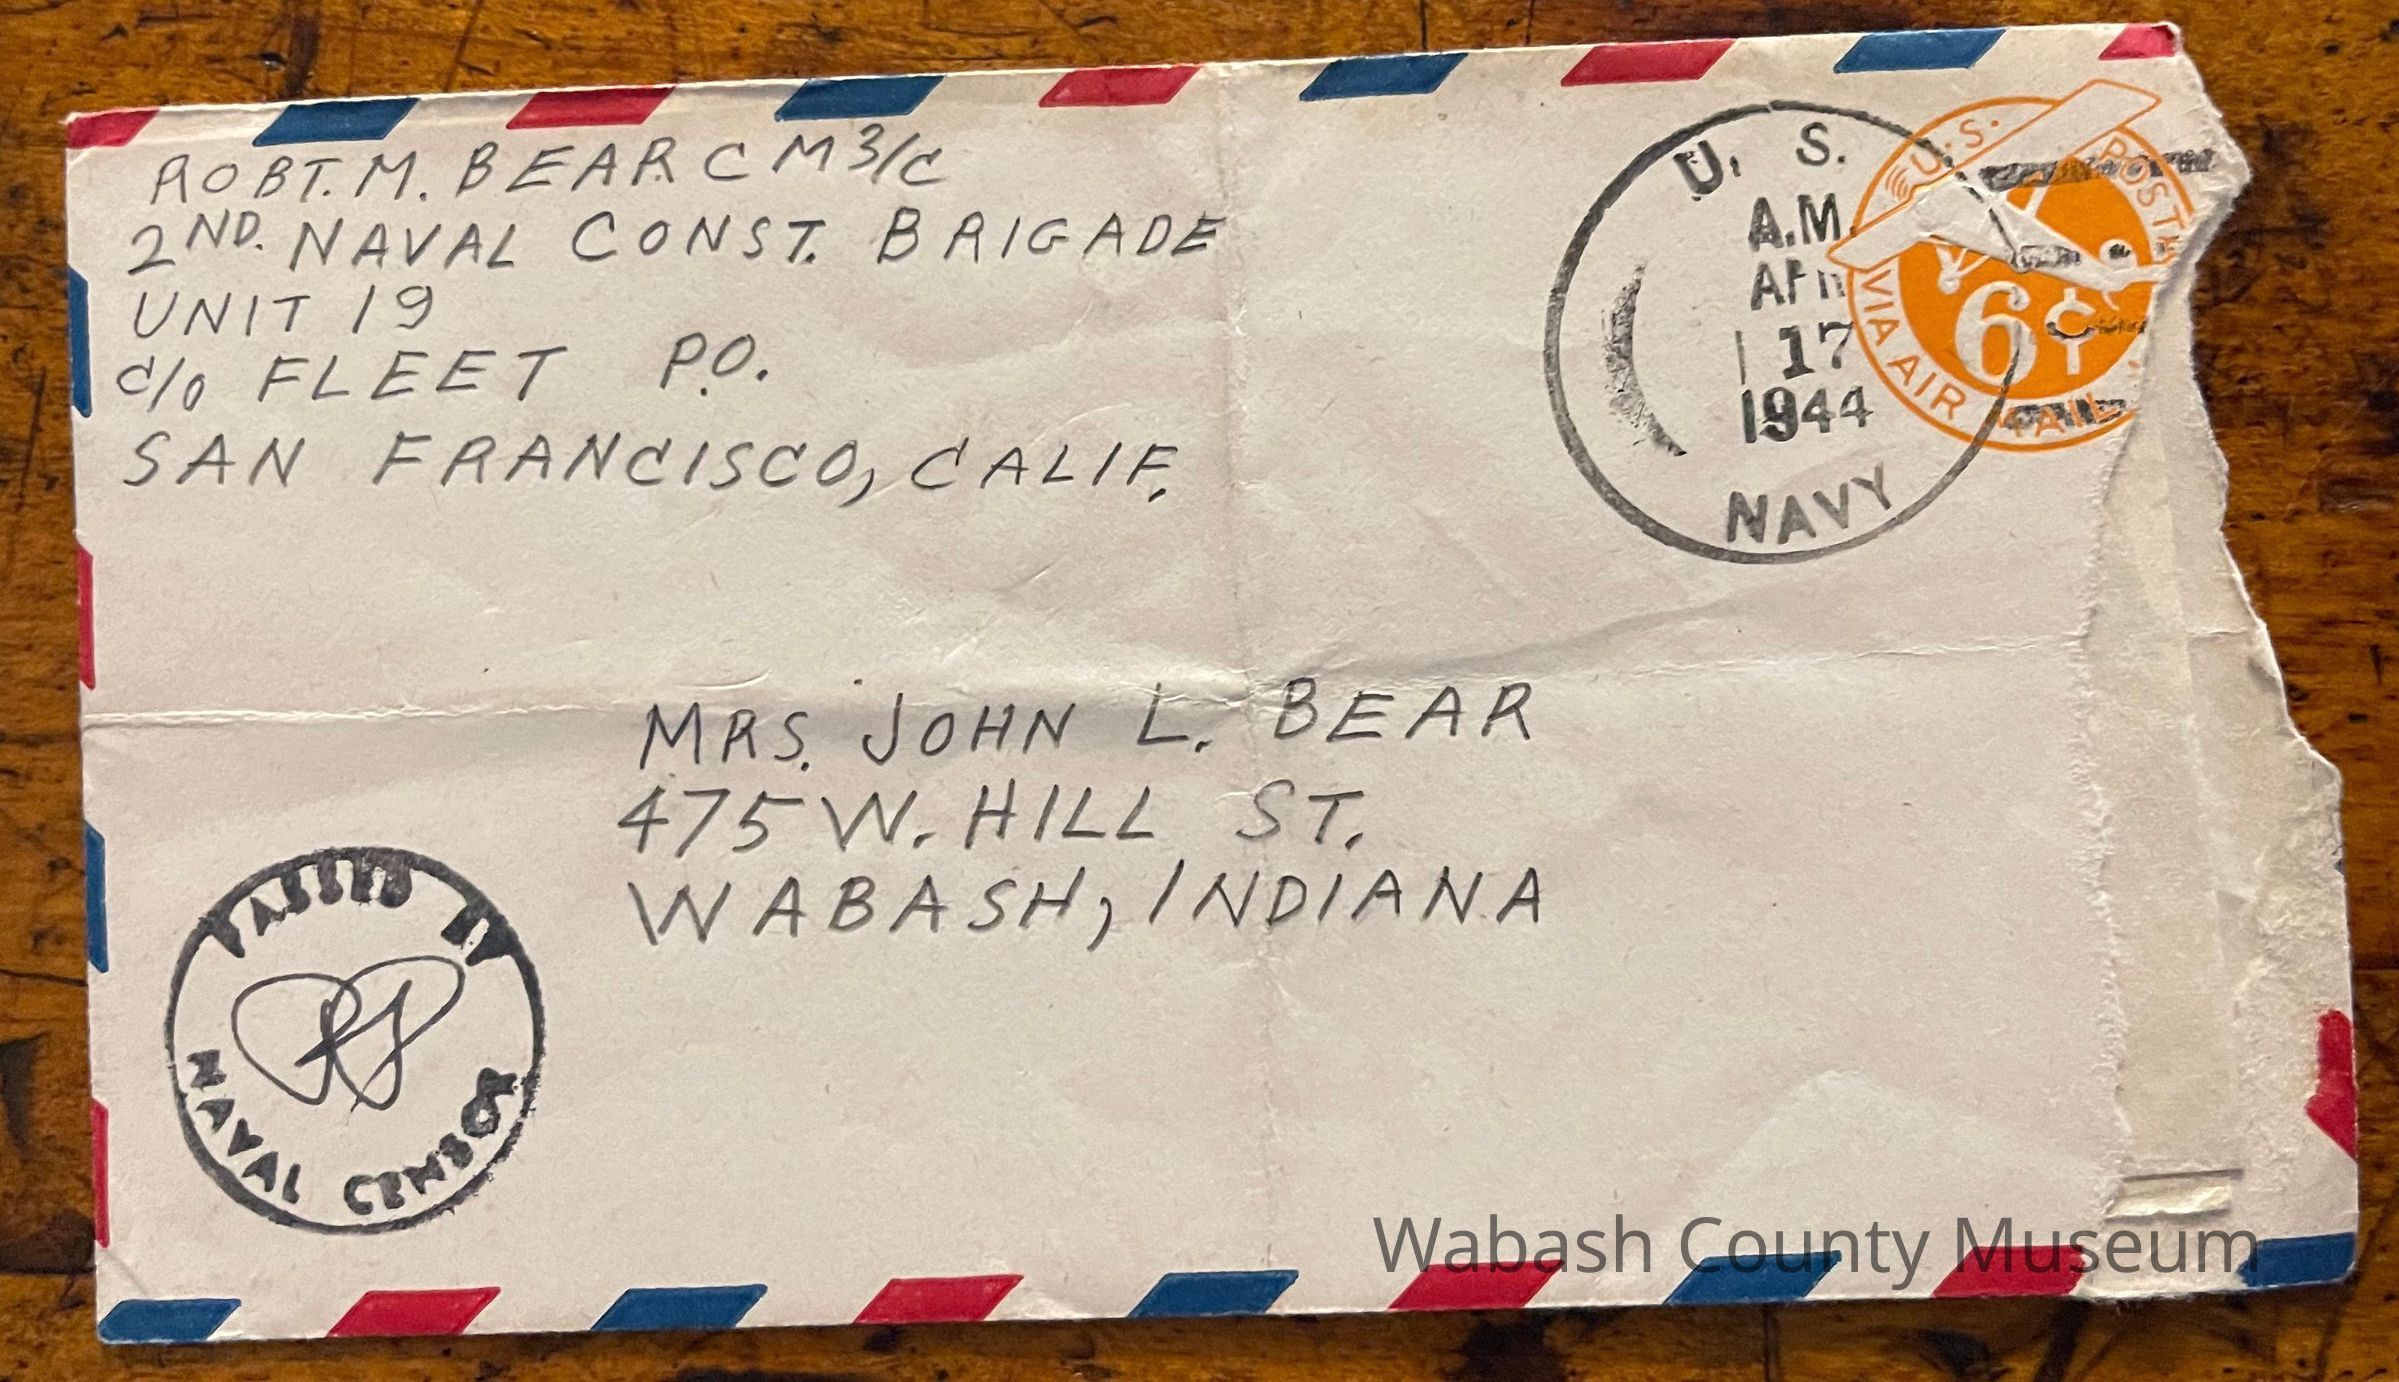 ROBT. M. BEAR C M 3/C
2ND. NAVAL CONST. BRIGADE
UNIT 19
C/O FLEET P.O.
SAN FRANCISCO, CALIF.
U. S.
A.M.
17
1944
NAVY
U.S. POSTAGE
6¢
VIA AIR MAIL
MRS. JOHN L. BEAR
475 W. HILL ST.
WABASH, INDIANA
PASSED BY
NAVAL CENSOR
Wabash County Museum